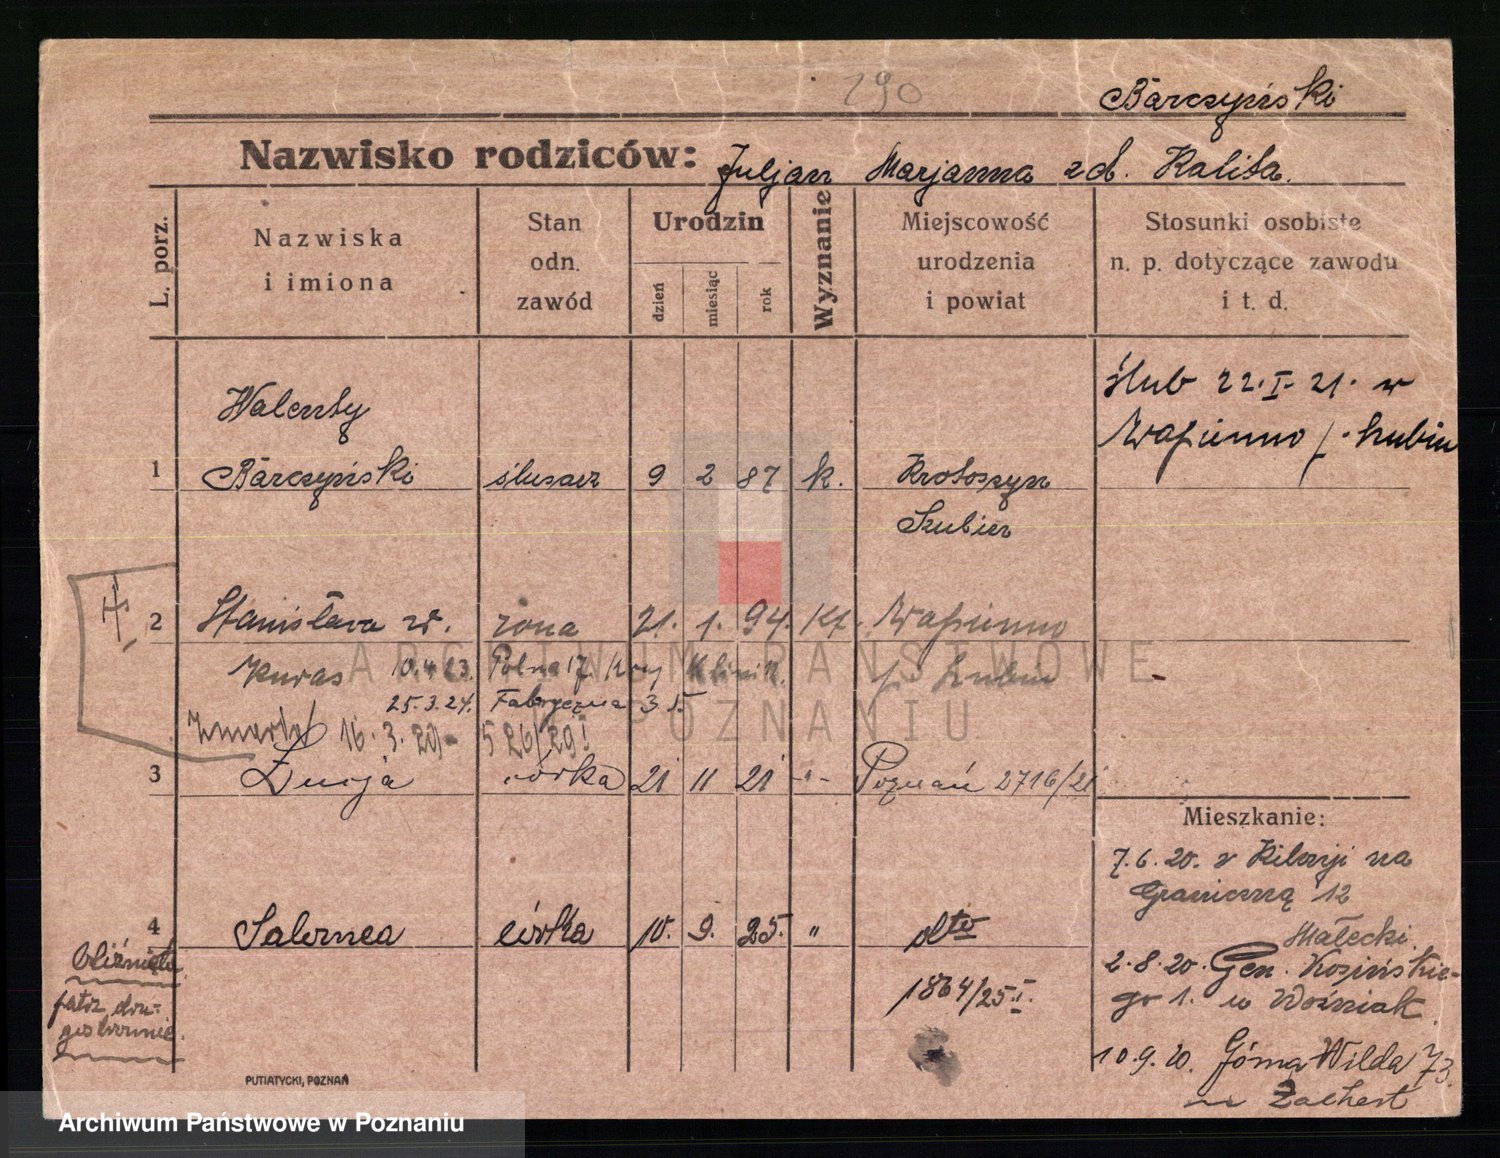 290
Barczyński
Nazwisko rodziców: Juljan Marjanna zd. Kalita.
L. porz.
Nazwiska
i imiona
Stan
odn.
zawód
Urodzin
dzień
miesiąc
rok
Wyznanie
Miejscowość
urodzenia
i powiat
Stosunki osobiste
n. p. dotyczące zawodu
i t. d.
ślub 22.I.21. w
Wapienno p. Szubin
Walenty
1 Barczyński ślusarz 9 2 87 k. Krotoszyn
Szubin
2 Stanisława ur. żona 21. 1. 94. kt. Wapienno
Kuras 10.4.23. Polna 17. Klinik.
p. Szubin
25.3.24. Fabryczna 35.
Zmarła 16.3.29 526/29 I
3 Łucja córka 21 11 21 -"- Poznań 2716/21
Mieszkanie:
7.6.20. z Kilonji na
Graniczną 12
Małecki.
4 Salomea córka 10. 9. 25. " dto
1864/25 I.
Bliźnięta
patrz
2.8.20. Gen. Kosińskie-
go 1. u Woźniak.
10.9.20. Górna Wilda 73.
u Zachert
PUTIATYCKI, POZNAŃ
ARCHIWUM PAŃSTWOWE
W POZNANIU
Archiwum Państwowe w Poznaniu